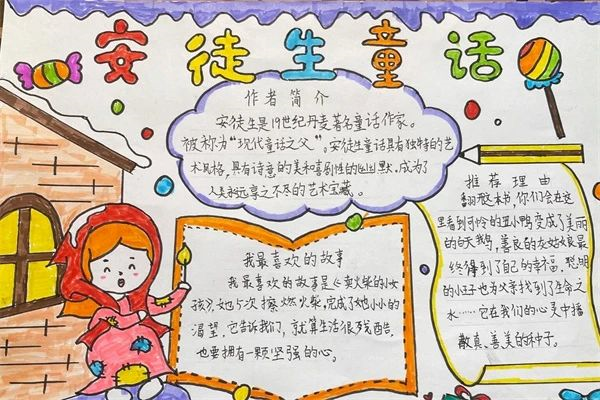 安徒生童话
作者简介
安徒生是19世纪丹麦著名童话作家。
被称为“现代童话之父”。安徒生童话具有独特的艺
术风格,具有诗意的美和喜剧性的幽默,成为了
人类永远享之不尽的艺术宝藏。
我最喜欢的故事
我最喜欢的故事是《卖火柴的小女
孩》,她5次擦燃火柴,完成了她小小的
渴望。它告诉我们,就算生活很残酷,
也要拥有一颗坚强的心。
推荐理由
翻开本书,你们会在这
里看到可怜的丑小鸭变成了美丽
的白天鹅,善良的灰姑娘最
终得到了自己的幸福,聪明
的小王子也为父亲找到了生命之
水……它在我们的心灵中播
散真、善、美的种子。